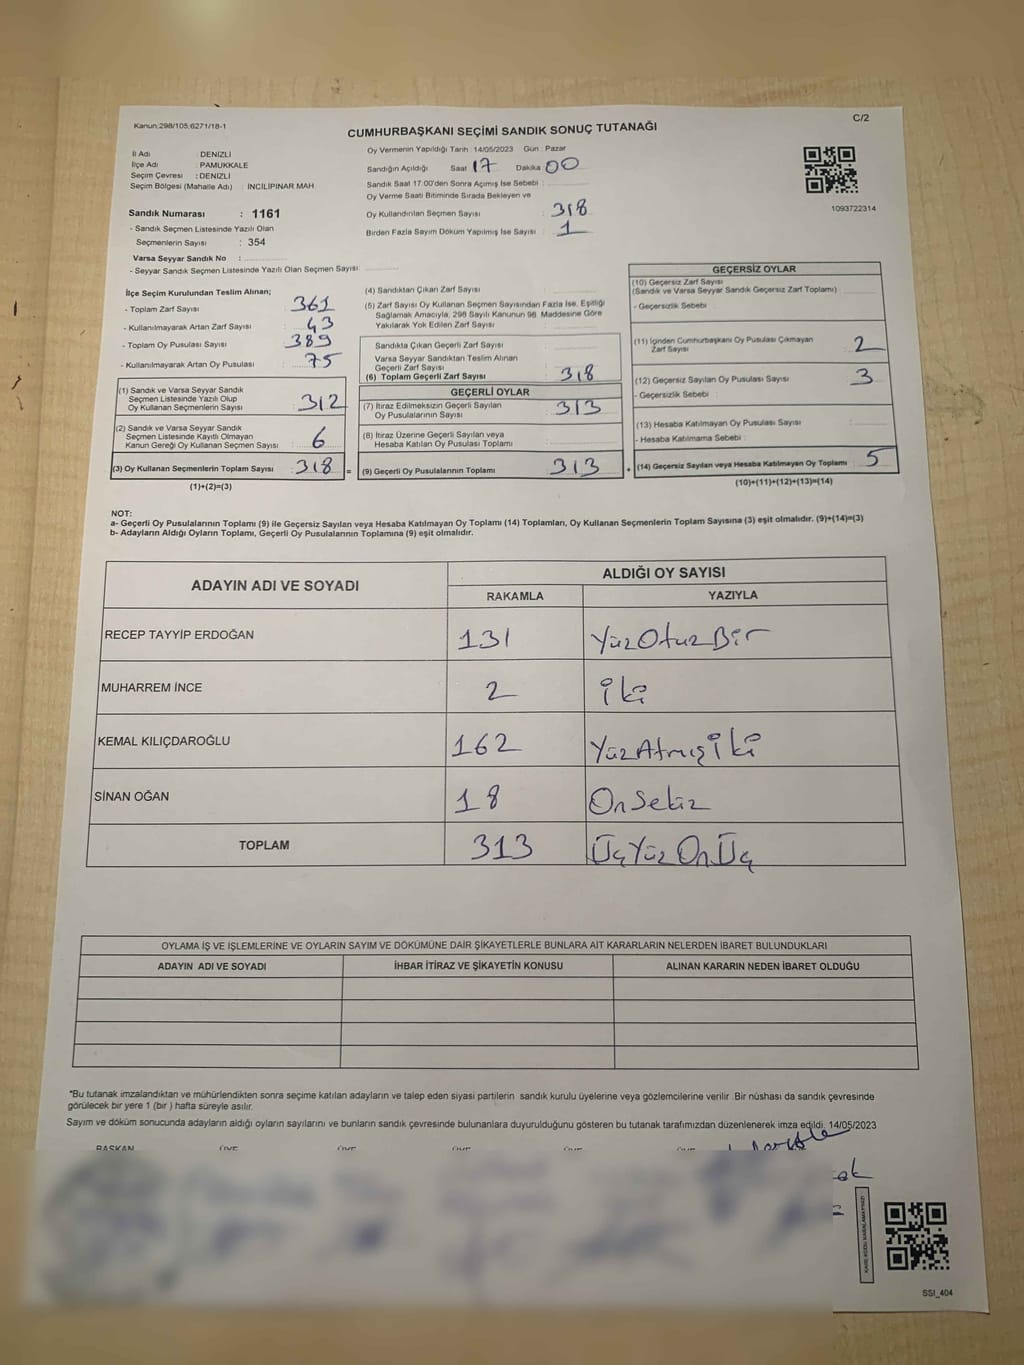 Kanun:298/105,6271/18-1
C/2
CUMHURBAŞKANI SEÇİMİ SANDIK SONUÇ TUTANAĞI
İl Adı : DENİZLİ
İlçe Adı : PAMUKKALE
Seçim Çevresi : DENİZLİ
Seçim Bölgesi (Mahalle Adı) : İNCİLİPINAR MAH
Sandık Numarası : 1161
- Sandık Seçmen Listesinde Yazılı Olan
Seçmenlerin Sayısı : 354
Varsa Seyyar Sandık No :
- Seyyar Sandık Seçmen Listesinde Yazılı Olan Seçmen Sayısı:
Oy Vermenin Yapıldığı Tarih :14/05/2023 Gün : Pazar
Sandığın Açıldığı Saat 17 Dakika :00
Sandık Saat 17:00'den Sonra Açımış İse Sebebi :
Oy Verme Saati Bitiminde Sırada Bekleyen ve
Oy Kullandırılan Seçmen Sayısı : 318
Birden Fazla Sayım Döküm Yapılmış İse Sayısı : 1
1093722314
İlçe Seçim Kurulundan Teslim Alınan;
- Toplam Zarf Sayısı : 361
- Kullanılmayarak Artan Zarf Sayısı : 43
- Toplam Oy Pusulası Sayısı : 389
- Kullanılmayarak Artan Oy Pusulası : 75
(1) Sandık ve Varsa Seyyar Sandık
Seçmen Listesinde Yazılı Olup
Oy Kullanan Seçmenlerin Sayısı : 312
(2) Sandık ve Varsa Seyyar Sandık
Seçmen Listesinde Kayıtlı Olmayan
Kanun Gereği Oy Kullanan Seçmen Sayısı : 6
(3) Oy Kullanan Seçmenlerin Toplam Sayısı : 318 =
(1)+(2)=(3)
(4) Sandıktan Çıkan Zarf Sayısı :
(5) Zarf Sayısı Oy Kullanan Seçmen Sayısından Fazla İse, Eşitliği
Sağlamak Amacıyla, 298 Sayılı Kanunun 98. Maddesine Göre
Yakılarak Yok Edilen Zarf Sayısı :
Sandıkta Çıkan Geçerli Zarf Sayısı :
Varsa Seyyar Sandıktan Teslim Alınan
Geçerli Zarf Sayısı :
(6) Toplam Geçerli Zarf Sayısı : 318
GEÇERLİ OYLAR
(7) İtiraz Edilmeksizin Geçerli Sayılan
Oy Pusulalarının Sayısı : 313
(8) İtiraz Üzerine Geçerli Sayılan veya
Hesaba Katılan Oy Pusulası Toplamı :
(9) Geçerli Oy Pusulalarının Toplamı : 313 +
GEÇERSİZ OYLAR
(10) Geçersiz Zarf Sayısı
(Sandık ve Varsa Seyyar Sandık Geçersiz Zarf Toplamı) :
- Geçersizlik Sebebi :
(11) İçinden Cumhurbaşkanı Oy Pusulası Çıkmayan
Zarf Sayısı : 2
(12) Geçersiz Sayılan Oy Pusulası Sayısı : 3
- Geçersizlik Sebebi :
(13) Hesaba Katılmayan Oy Pusulası Sayısı :
- Hesaba Katılmama Sebebi :
(14) Geçersiz Sayılan veya Hesaba Katılmayan Oy Toplamı : 5
(10)+(11)+(12)+(13)=(14)
NOT:
a- Geçerli Oy Pusulalarının Toplamı (9) ile Geçersiz Sayılan veya Hesaba Katılmayan Oy Toplamı (14) Toplamları, Oy Kullanan Seçmenlerin Toplam Sayısına (3) eşit olmalıdır. (9)+(14)=(3)
b- Adayların Aldığı Oyların Toplamı, Geçerli Oy Pusulalarının Toplamına (9) eşit olmalıdır.
ADAYIN ADI VE SOYADI
ALDIĞI OY SAYISI
RAKAMLA YAZIYLA
RECEP TAYYİP ERDOĞAN 131 YüzOtuzBir
MUHARREM İNCE 2 iki
KEMAL KILIÇDAROĞLU 162 YüzAtmışiki
SİNAN OĞAN 18 OnSekiz
TOPLAM 313 ÜçYüzOnÜç
OYLAMA İŞ VE İŞLEMLERİNE VE OYLARIN SAYIM VE DÖKÜMÜNE DAİR ŞİKAYETLERLE BUNLARA AİT KARARLARIN NELERDEN İBARET BULUNDUKLARI
ADAYIN ADI VE SOYADI İHBAR İTİRAZ VE ŞİKAYETİN KONUSU ALINAN KARARIN NEDEN İBARET OLDUĞU
"Bu tutanak imzalandıktan ve mühürlendikten sonra seçime katılan adayların ve talep eden siyasi partilerin sandık kurulu üyelerine veya gözlemcilerine verilir .Bir nüshası da sandık çevresinde
görülecek bir yere 1 (bir ) hafta süreyle asılır.
Sayım ve döküm sonucunda adayların aldığı oyların sayılarını ve bunların sandık çevresinde bulunanlara duyurulduğunu gösteren bu tutanak tarafımızdan düzenlenerek imza edildi. 14/05/2023
BAŞKAN ÜYE ÜYE ÜYE ÜYE ÜYE
KARE KODU KARALAMAYINIZ!
SSI_404